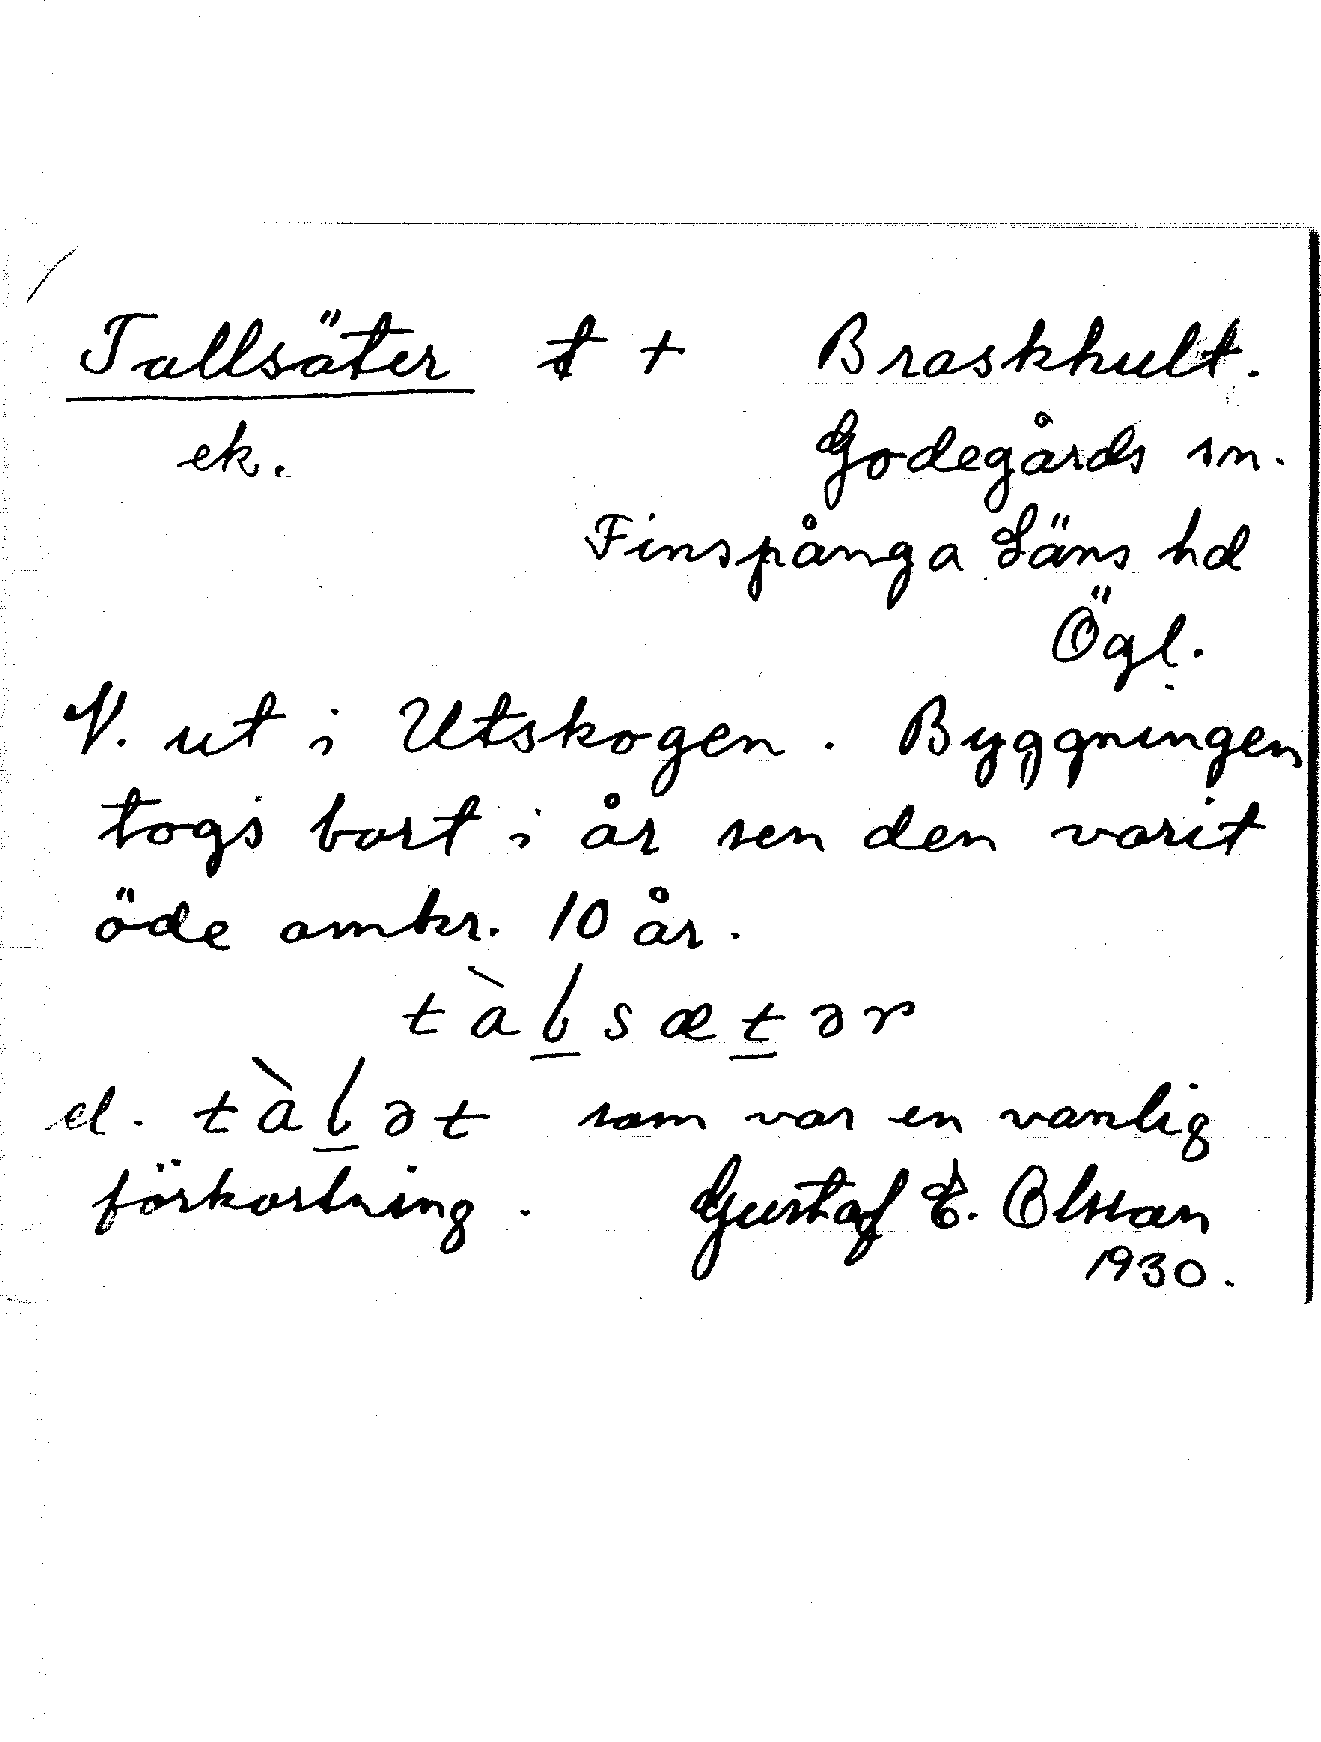 Tallsäter t + Braskhult.
ek. Godegårds sn.
Finspånga Läns hd
Ögl.
N. ut i Utskogen. Byggningen
togs bort i år sen den varit
öde omkr. 10 år.
tàlsætər
el. tàlət som var en vanlig
förkortning. Gustaf E. Olsson
1930.